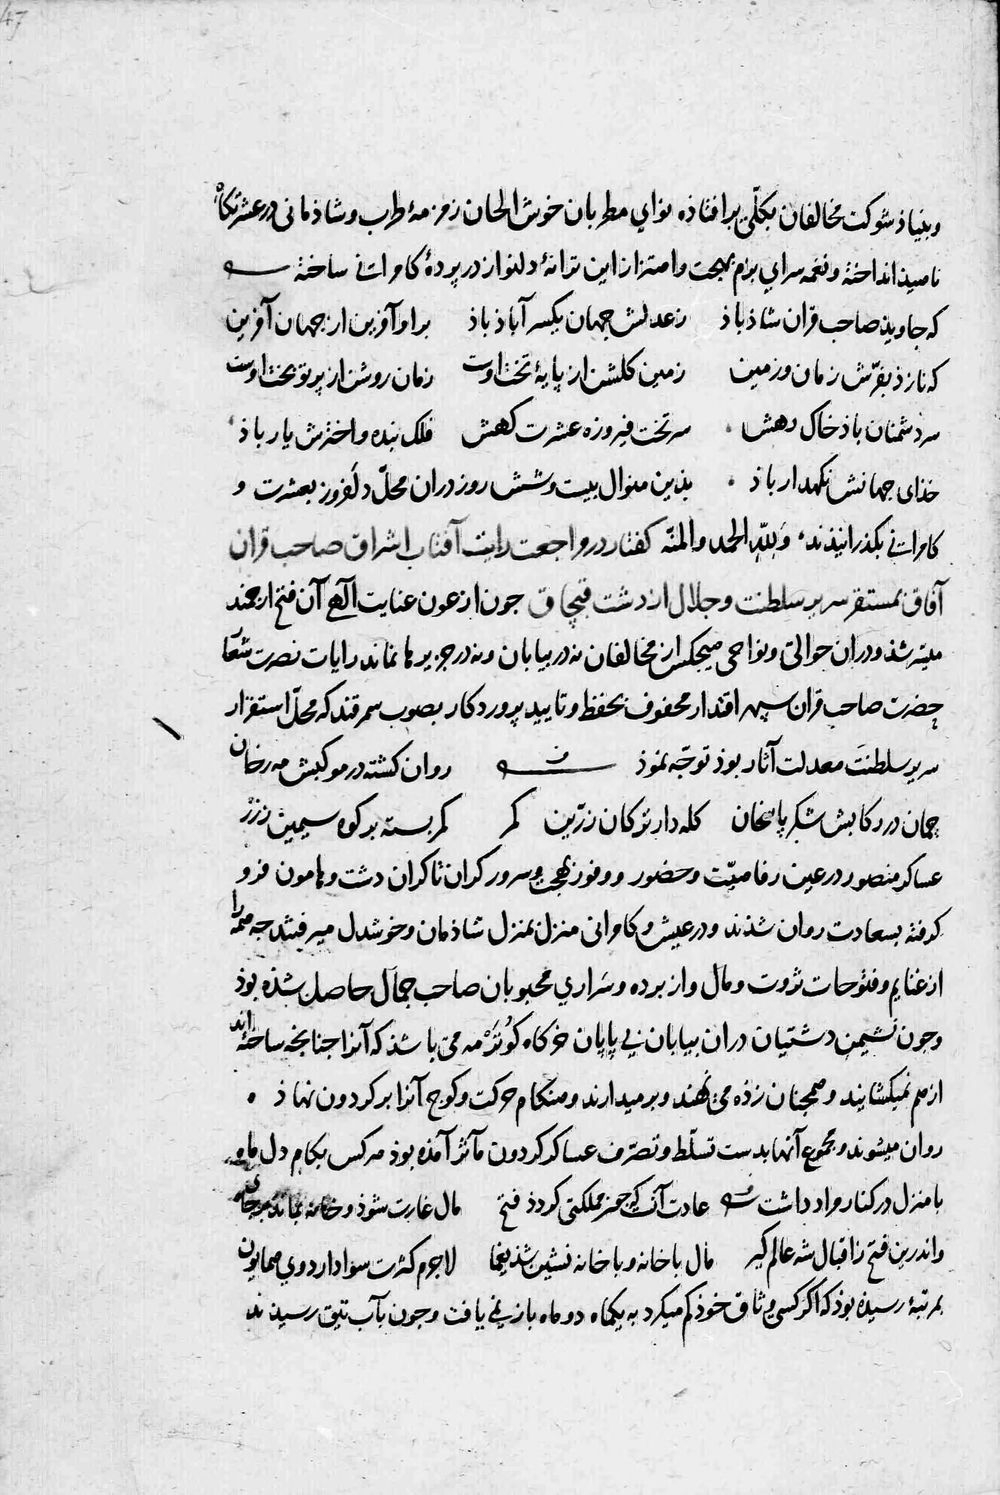 47
و بنیاذ شوکت مخالفان بکلّی برافتاذه نوای مطربان خوش الحان زمزمهٔ طرب و شاذمانی در عشرتکاه
ناصیذ انداخته و نغمه سرای بزم بهجت و اهتزاز این ترانهٔ دلنواز در پردهٔ کامرانی ساخته
که جاویذ صاحب قران شاذ باذ زعدلش جهان یکسر آباذ باذ براو آفرین از جهان آفرین
که نازذ بفرّش زمان و زمین زمین کلشن از پایهٔ تخت اوست زمان روشن از پرتو بخت اوست
سر دشمنان باذ خاک رهش سر تخت فیروزه عشرت کهش فلک بنده و اخترش یار باذ
خذای جهانش نکهدار باذ بذین منوال بیست و شش روز دران محلّ دلفروز بعشرت و
کامرانی بکذرانیذند وللّه الحمد والمنّه کفتار در مراجعت رایت آفتاب اشراق صاحب قران
آفاق بمستقر سریر سلطنت و جلال از دشت قبچاق جون از عون عنایت الهی آن فتح ارجمند
میسّر شذ و دران حوالی و نواحی هیجکس از مخالفان نه در بیابان و نه در جزیرها نماند رایات نصرت شعا
حضرت صاحب قران سپهر اقتدار محفوف بحفظ و تایید پروردکار بصوب سمرقند که محلّ استقرار
سریر سلطنت معدلت آثار بوذ توجّه نموذ روان کشته در موکبش مه رخان
جمان در رکابش شکر پاسخان کله دار ترکان زرّین کمر کمر بسته بر کوه سیمین ز زر
عساکر منصور در عین رفاهیّت و حضور و وفور بهجت و سرور کران تا کران دشت و هامون فرو
کرفته بسعادت روان شذند و در عیش و کامرانی منزل بمنزل شاذمان و خوشدل میرفتند جه همه را
از غنایم و فتوحات ثروت و مال و از برده و سراری محبوبان صاحب جمال حاصل شذه بوذ
و جون نشیمن دشتیان دران بیابان بی پایان خرکاه کوترمه می باشذ که آنرا جنانجه ساخته اند
از هم نمیکشایند و همجنان زذه می نهند و برمیدارند و هنکام حرکت و کوج آنرا بر کردون نهاذ
روان میشوند و مجموع آنها بدست تسلّط و تصرّف عساکر کردون مآثر آمذه بوذ هر کس بکام دل ماو
با منزل در کنار مراد داشت عادت آنک جز مملکتی کردذ فتح مال غارت شوذ و خانه بماند برجای
واندرین فتح ز اقبال شه عالم کیر مال با خانه و با خانه نشین شذ یغما لاجرم کثرت سواد اردوی همایون
بمرتبهٔ رسیذه بوذ که اکر کسی وثاق خوذ کم میکرد به یکماه دو ماه باز نمی یافت و جون بآب تیق رسیذند